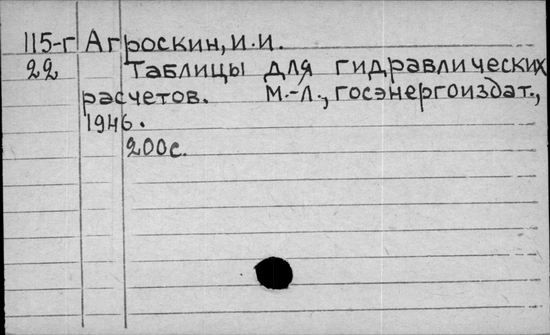 115-г Агроскин, И.И.
22 Таблицы для гидравлических
расчетов. М.-Л., Госэнергоиздат.,
1946.
200с.